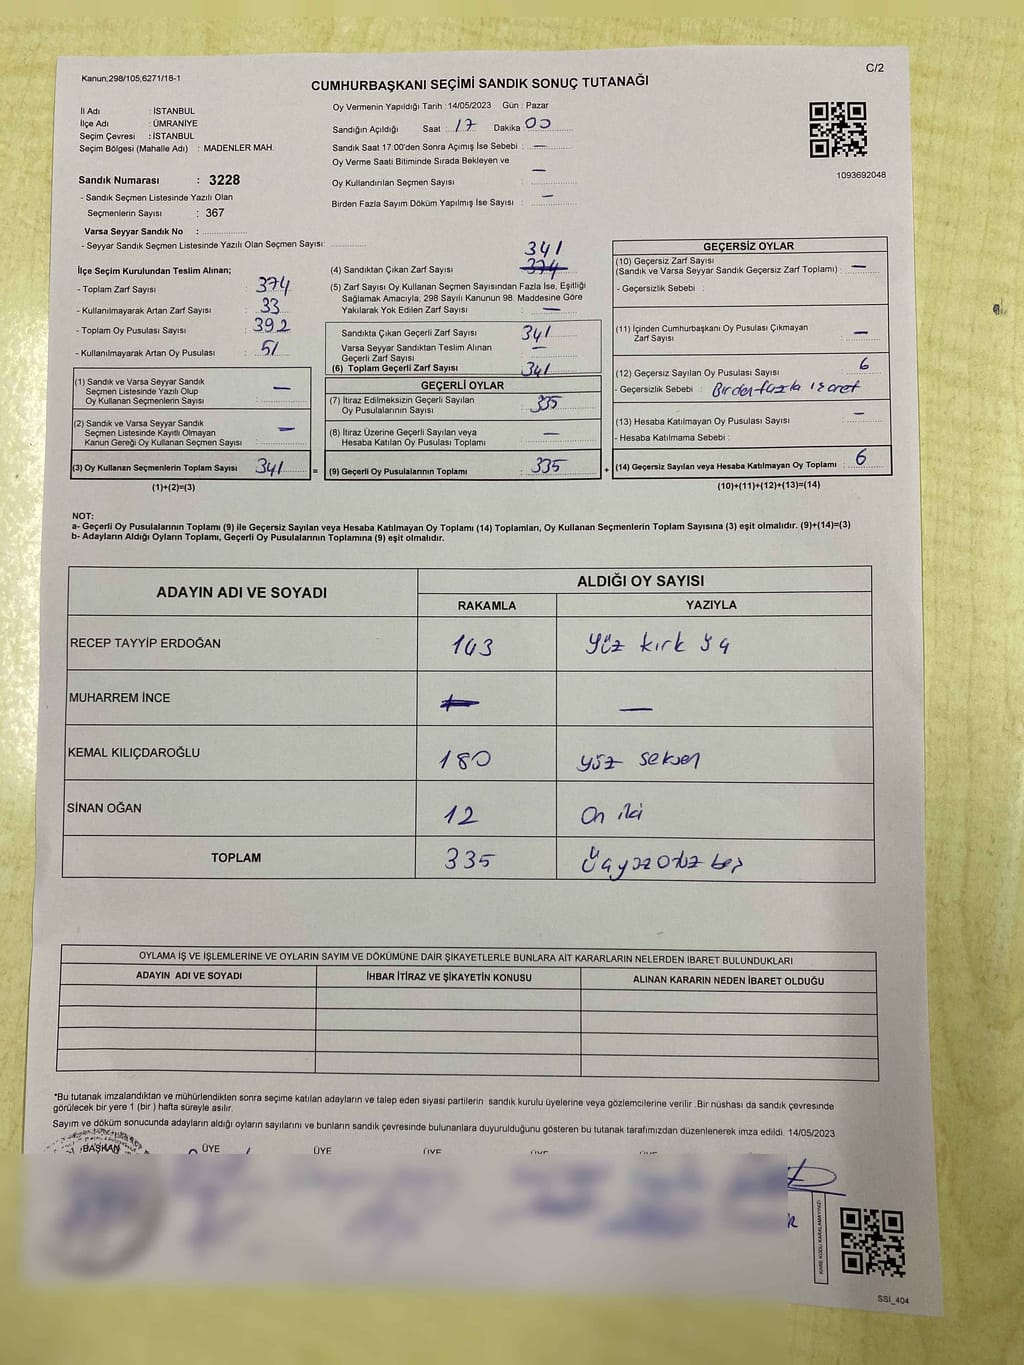 Kanun;298/105,6271/18-1
C/2
CUMHURBAŞKANI SEÇİMİ SANDIK SONUÇ TUTANAĞI
İl Adı : İSTANBUL
İlçe Adı : ÜMRANİYE
Seçim Çevresi : İSTANBUL
Seçim Bölgesi (Mahalle Adı) : MADENLER MAH.
Sandık Numarası : 3228
- Sandık Seçmen Listesinde Yazılı Olan
Seçmenlerin Sayısı : 367
Varsa Seyyar Sandık No :
- Seyyar Sandık Seçmen Listesinde Yazılı Olan Seçmen Sayısı:
Oy Vermenin Yapıldığı Tarih : 14/05/2023 Gün : Pazar
Sandığın Açıldığı Saat : 17 Dakika 00
Sandık Saat 17:00'den Sonra Açımış İse Sebebi : —
Oy Verme Saati Bitiminde Sırada Bekleyen ve
Oy Kullandırılan Seçmen Sayısı : —
Birden Fazla Sayım Döküm Yapılmış İse Sayısı : —
1093692048
İlçe Seçim Kurulundan Teslim Alınan;
- Toplam Zarf Sayısı : 374
- Kullanılmayarak Artan Zarf Sayısı : 33
- Toplam Oy Pusulası Sayısı : 392
- Kullanılmayarak Artan Oy Pusulası : 51
(1) Sandık ve Varsa Seyyar Sandık
Seçmen Listesinde Yazılı Olup
Oy Kullanan Seçmenlerin Sayısı : —
(2) Sandık ve Varsa Seyyar Sandık
Seçmen Listesinde Kayıtlı Olmayan
Kanun Gereği Oy Kullanan Seçmen Sayısı : —
(3) Oy Kullanan Seçmenlerin Toplam Sayısı 341 =
(1)+(2)=(3)
341
(4) Sandıktan Çıkan Zarf Sayısı 374
(5) Zarf Sayısı Oy Kullanan Seçmen Sayısından Fazla İse, Eşitliği
Sağlamak Amacıyla; 298 Sayılı Kanunun 98. Maddesine Göre
Yakılarak Yok Edilen Zarf Sayısı : —
Sandıkta Çıkan Geçerli Zarf Sayısı 341
Varsa Seyyar Sandıktan Teslim Alınan
Geçerli Zarf Sayısı —
(6) Toplam Geçerli Zarf Sayısı 341
GEÇERLİ OYLAR
(7) İtiraz Edilmeksizin Geçerli Sayılan
Oy Pusulalarının Sayısı : 335
(8) İtiraz Üzerine Geçerli Sayılan veya
Hesaba Katılan Oy Pusulası Toplamı : —
(9) Geçerli Oy Pusulalarının Toplamı : 335 +
GEÇERSİZ OYLAR
(10) Geçersiz Zarf Sayısı
(Sandık ve Varsa Seyyar Sandık Geçersiz Zarf Toplamı) : —
- Geçersizlik Sebebi :
(11) İçinden Cumhurbaşkanı Oy Pusulası Çıkmayan
Zarf Sayısı : —
(12) Geçersiz Sayılan Oy Pusulası Sayısı : 6
- Geçersizlik Sebebi : Birden fazla işaret
(13) Hesaba Katılmayan Oy Pusulası Sayısı : —
- Hesaba Katılmama Sebebi :
(14) Geçersiz Sayılan veya Hesaba Katılmayan Oy Toplamı : 6
(10)+(11)+(12)+(13)=(14)
NOT:
a- Geçerli Oy Pusulalarının Toplamı (9) ile Geçersiz Sayılan veya Hesaba Katılmayan Oy Toplamı (14) Toplamları, Oy Kullanan Seçmenlerin Toplam Sayısına (3) eşit olmalıdır. (9)+(14)=(3)
b- Adayların Aldığı Oyların Toplamı, Geçerli Oy Pusulalarının Toplamına (9) eşit olmalıdır.
ADAYIN ADI VE SOYADI ALDIĞI OY SAYISI
RAKAMLA YAZIYLA
RECEP TAYYİP ERDOĞAN 143 Yüz kırk üç
MUHARREM İNCE — —
KEMAL KILIÇDAROĞLU 180 yüz seksen
SİNAN OĞAN 12 On iki
TOPLAM 335 Üçyüzotuz beş
OYLAMA İŞ VE İŞLEMLERİNE VE OYLARIN SAYIM VE DÖKÜMÜNE DAİR ŞİKAYETLERLE BUNLARA AİT KARARLARIN NELERDEN İBARET BULUNDUKLARI
ADAYIN ADI VE SOYADI İHBAR İTİRAZ VE ŞİKAYETİN KONUSU ALINAN KARARIN NEDEN İBARET OLDUĞU
*Bu tutanak imzalandıktan ve mühürlendikten sonra seçime katılan adayların ve talep eden siyasi partilerin sandık kurulu üyelerine veya gözlemcilerine verilir .Bir nüshası da sandık çevresinde
görülecek bir yere 1 (bir ) hafta süreyle asılır.
Sayım ve döküm sonucunda adayların aldığı oyların sayılarını ve bunların sandık çevresinde bulunanlara duyurulduğunu gösteren bu tutanak tarafımızdan düzenlenerek imza edildi. 14/05/2023
BAŞKAN ÜYE ÜYE ÜYE ÜYE ÜYE
KARE KODU KARALAMAYINIZ!
SSI_404